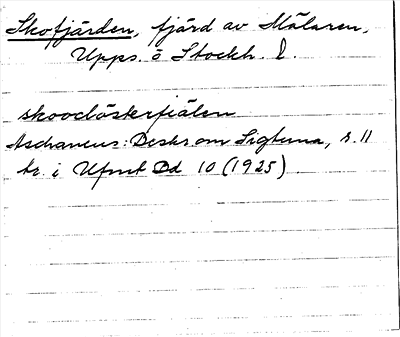 Skofjärden, fjärd av Mälaren,
Upps. o Stockh. l.
skooclösterfiälen
Aschaneus: Beskr om Sigtuna, s. 11
tr. i Ufmt Bd 10 (1925)